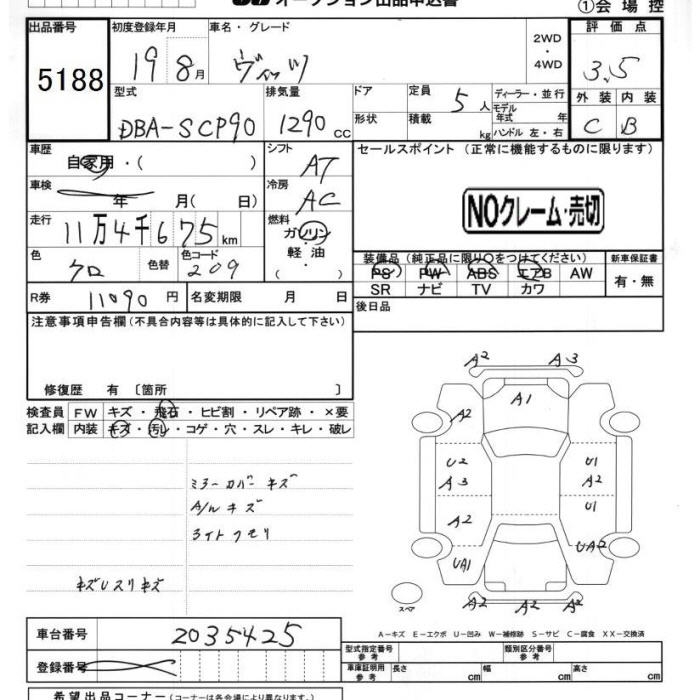 オークション出品申込書 ①会場控
出品番号 5188
初度登録年月 19 8月
車名・グレード ヴィッツ
2WD・4WD
評価点 3.5
外装 C 内装 B
型式 DBA-SCP90
排気量 1290 cc
ドア 形状
定員 5人
積載 kg
ディーラー・並行
モデル年式 年
ハンドル 左・右
車歴 自家用・( )
シフト AT
セールスポイント (正常に機能するものに限ります)
車検 年 月( 日)
冷房 AC
NOクレーム・売切
走行 11万4千675km
燃料 ガソリン・軽油
色 クロ 色替 色コード 209
装備品(純正品に限り○をつけてください) 新車保証書
PS PW ABS エアB AW 有・無
SR ナビ TV カワ
R券 11090円 名変期限 月 日
後日品
注意事項申告欄(不具合内容等は具体的に記入して下さい)
修復歴 有 〔箇所 〕
検査員記入欄
FW キズ・飛石・ヒビ割・リペア跡・×要
内装 キズ・汚レ・コゲ・穴・スレ・キレ・破レ
ミラーカバーキズ
A/Wキズ
ライトクモリ
キズUスリキズ
A2 A3
A1
A2
U2 U1
A3 A2
U1
A2
UA2
UA1
A2 A2 A2
スペア
A-キズ E-エクボ U-凹み W-補修跡 S-サビ C-腐食 XX-交換済
車台番号 2035425
型式指定番号 参考 類別区分番号 参考
登録番号
車庫証明用 参考 長さ cm 幅 cm 高さ cm
希望出品コーナー(コーナーは各会場により異なります。)